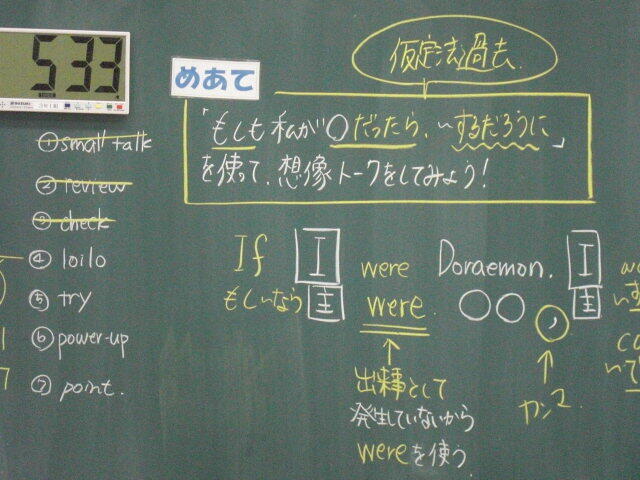 533
仮定法過去.
めあて
「もしも私が○だったら、~するだろうに」
を使って、想像トークをしてみよう!
①small talk
②review
③check
④loilo
⑤try
⑥power-up
⑦point.
If I were Doraemon. I
もし~なら 主 were. ○○ , 主
出来事として
発生していないから
wereを使う
カンマ